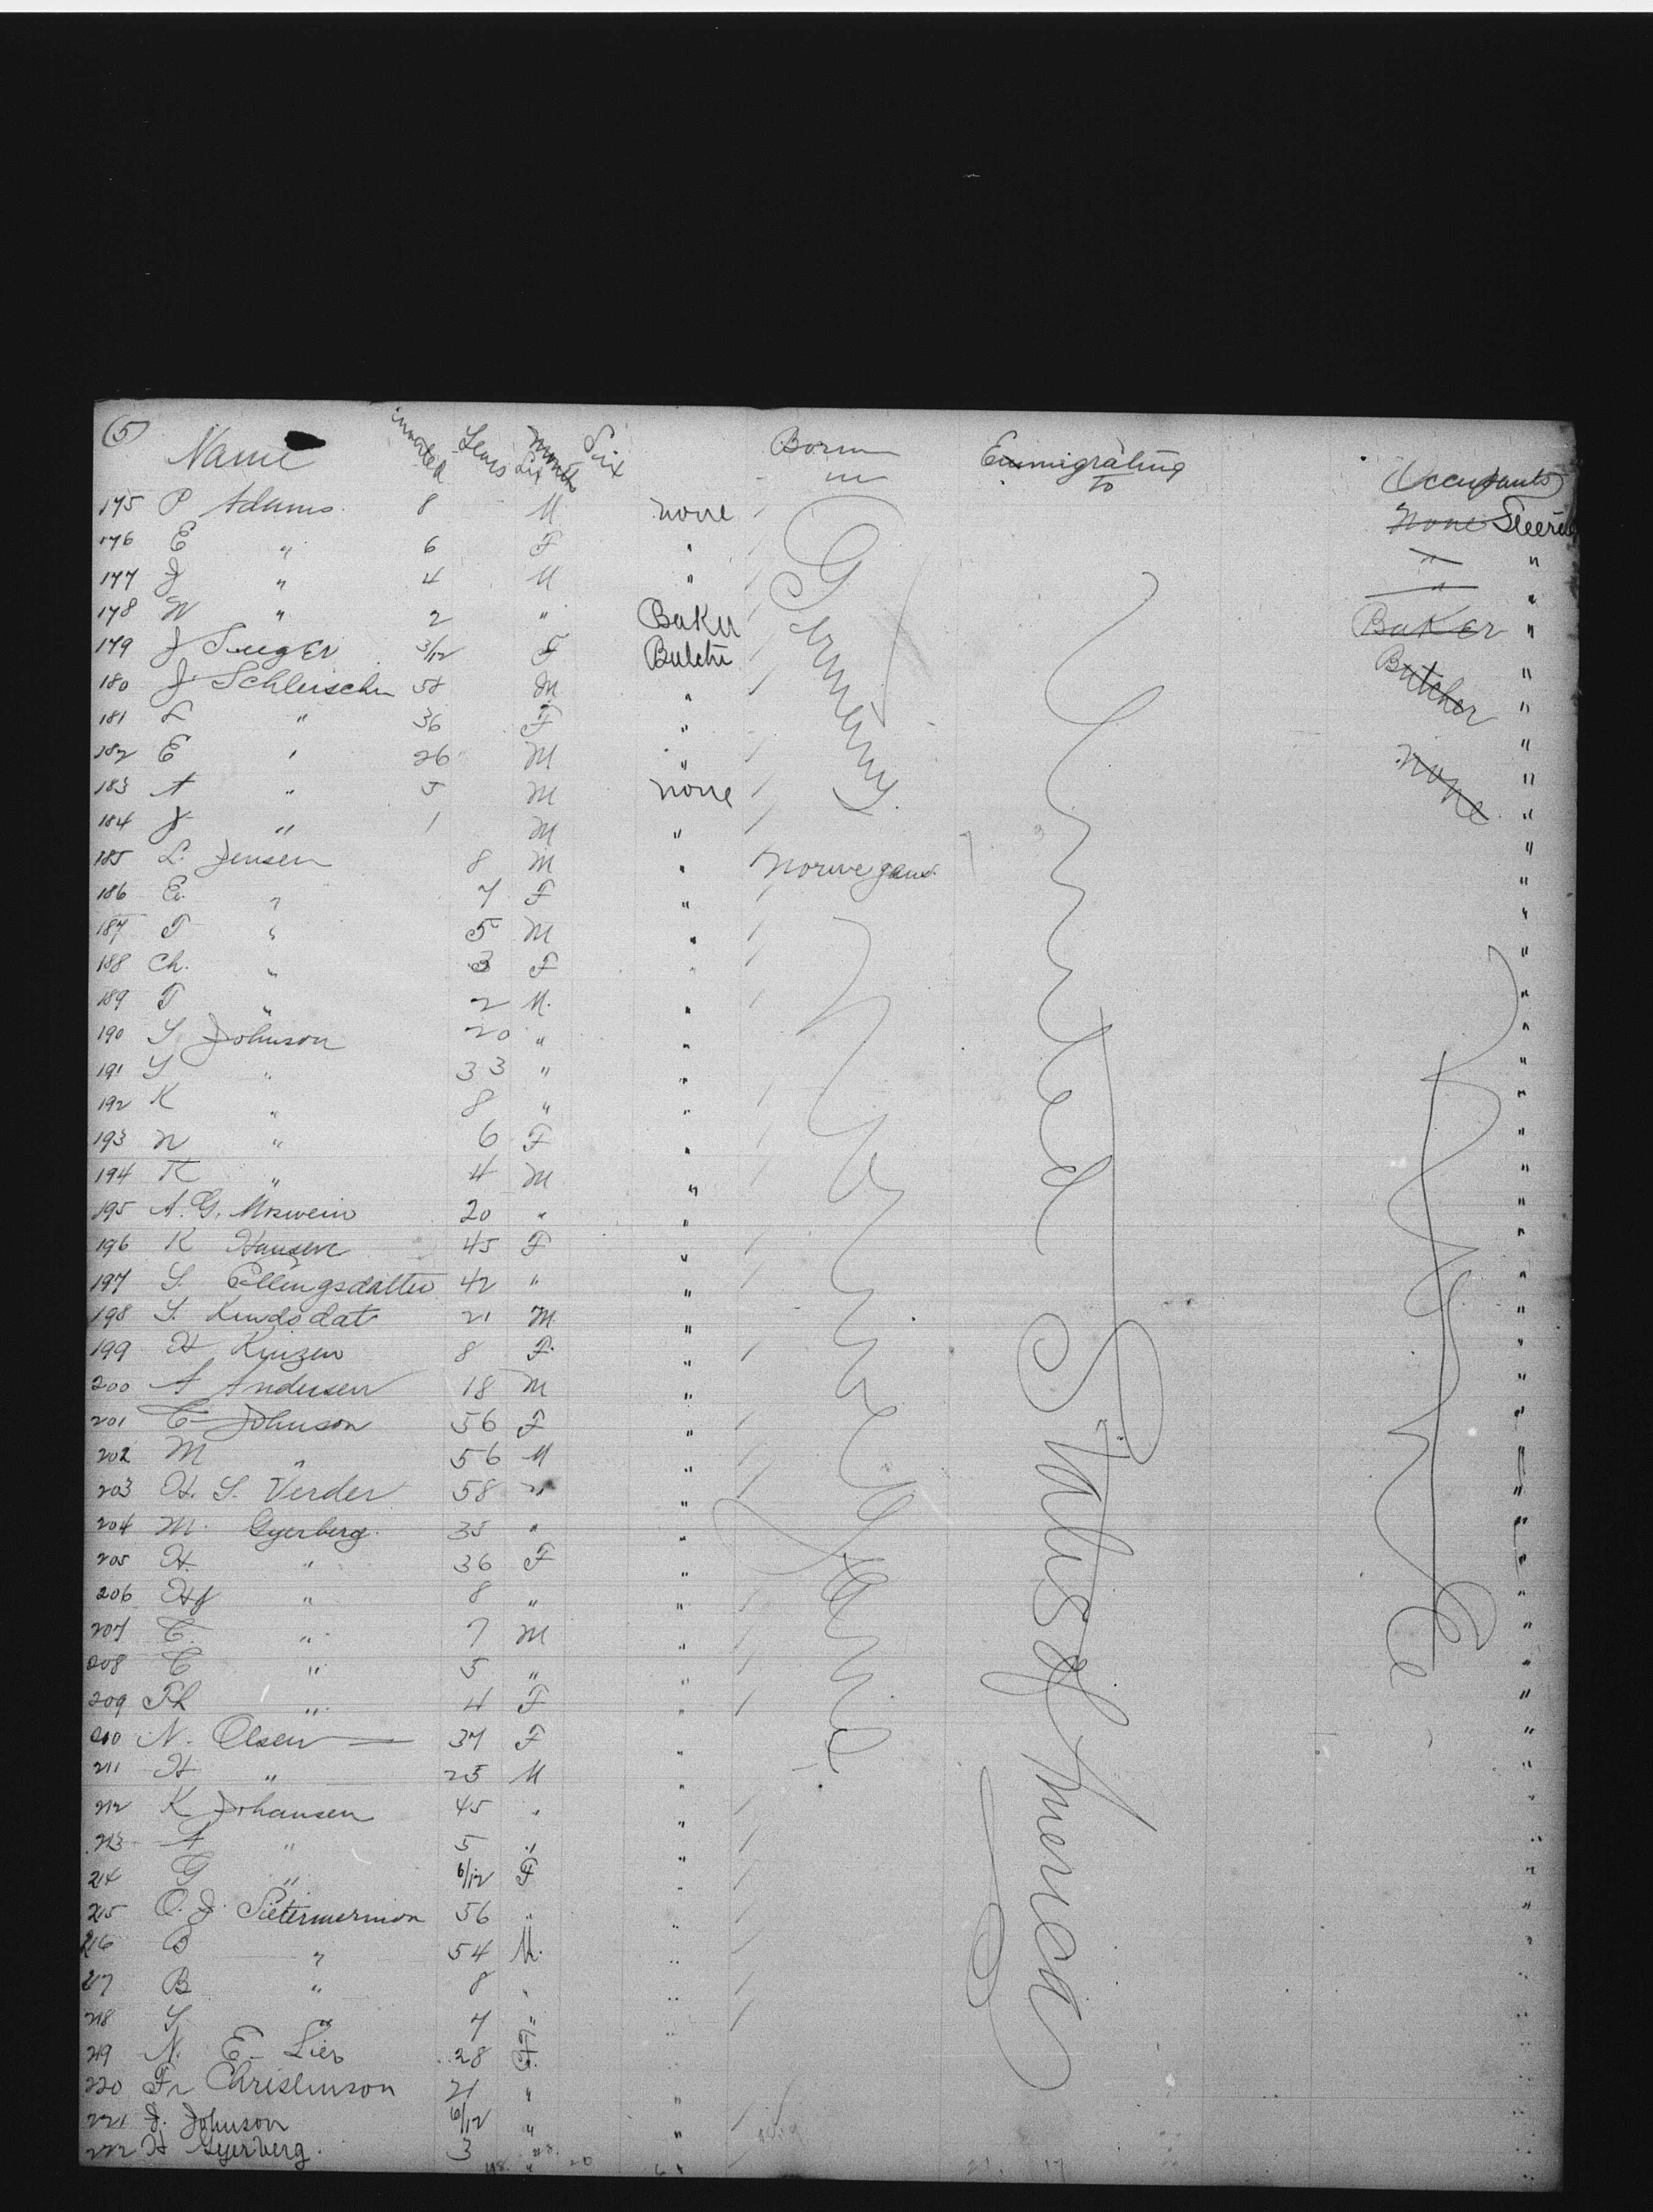 (5)
Name Years Months Sex Born in Emmigrating to Occupants
175 P Adams 8 M none None Steera
176 E " 6 F " " "
177 J " 4 M " " "
178 W " 2 " Baker Baker "
179 J 3/12 F Butche Butcher "
180 J Schleischn 58 M " "
181 L " 36 F " "
182 E " 26 M " none "
183 A " 5 M none "
184 J " 1 M " "
185 L. Jensen 8 M " Norwegans "
186 E. " 7 F " "
187 T " 5 M " "
188 Ch. " 3 F " "
189 T " 2 M. " "
190 S Johnson 20 " " "
191 S " 33 " " "
192 K " 8 " " "
193 N " 6 F " "
194 K " 4 M " "
195 A. G. 20 " " "
196 K Hansen 45 F " "
197 S. Ellingsdatter 42 " " "
198 S. Kundsdat 21 M " "
199 H Kinzen 8 F. " "
200 A Andersen 18 M " "
201 C Johnson 56 F " "
202 M " 56 M " "
203 H. S. Verder 58 " " "
204 M. Gyerberg 35 " " "
205 H. " 36 F " "
206 " 8 " " "
207 C. " 7 M " "
208 C " 5 " " "
209 Th " 4 F " "
210 N. Olsen 37 F " "
211 H " 25 M " "
212 K Johansen 45 " " "
213 A " 5 " " "
214 G " 6/12 F " "
215 O. J. 56 " " "
216 B " 54 M. " "
217 B " 8 " " "
218 S " 7 " " "
219 N. E. Lier 28 F. " "
220 Fr Christenson 21 " " "
221 J. Johnson 6/12 " " "
222 H Gyerberg. 3 " " "
Germany.
United States of America
None